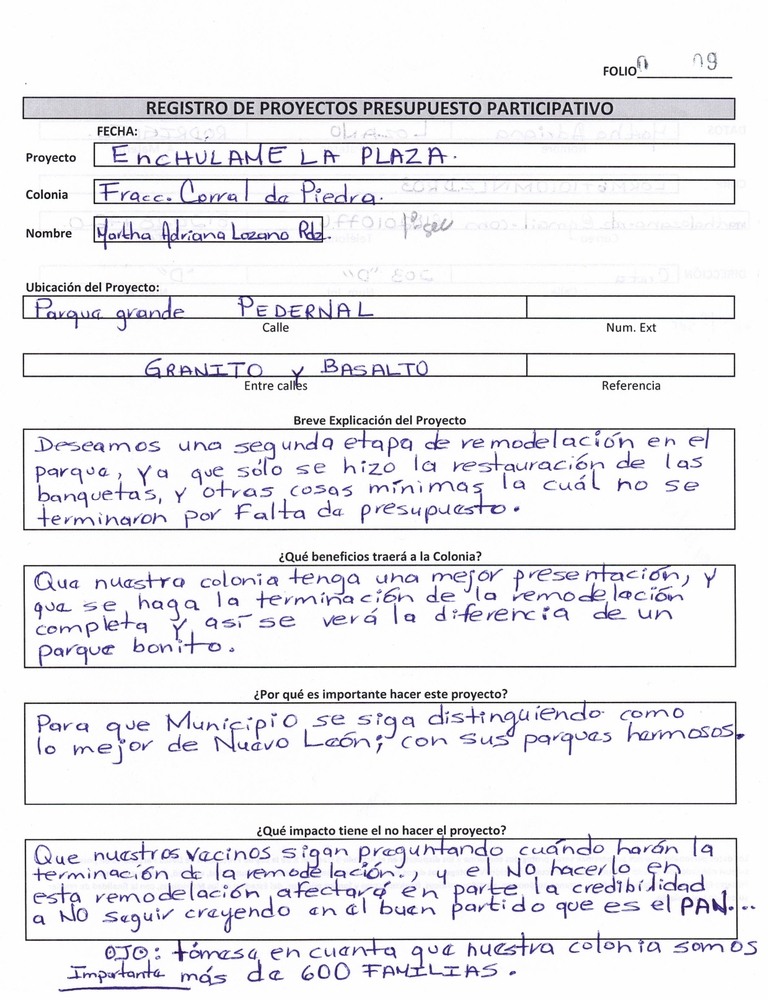 FOLIO 0 09
REGISTRO DE PROYECTOS PRESUPUESTO PARTICIPATIVO
FECHA:
Proyecto EnCHULAME LA PLAZA.
Colonia Fracc. Corral de Piedra.
Nombre Martha Adriana Lozano Rdz. 1º sec
Ubicación del Proyecto:
Parque grande PEDERNAL
Calle Num. Ext
GRANITO y BASALTO
Entre calles Referencia
Breve Explicación del Proyecto
Deseamos una segunda etapa de remodelación en el
parque, ya que sólo se hizo la restauración de las
banquetas, y otras cosas mínimas la cuál no se
terminaron por Falta de presupuesto.
¿Qué beneficios traerá a la Colonia?
Que nuestra colonia tenga una mejor presentación, y
que se haga la terminación de la remodelación
completa y así se verá la diferencia de un
parque bonito.
¿Por qué es importante hacer este proyecto?
Para que Municipio se siga distinguiendo como
lo mejor de Nuevo León; con sus parques hermosos.
¿Qué impacto tiene el no hacer el proyecto?
Que nuestros vecinos sigan preguntando cuándo harán la
terminación de la remodelación., y el NO hacerlo en
esta remodelación afectará en parte la credibilidad
a NO seguir creyendo en el buen partido que es el PAN...
OJO: tómese en cuenta que nuestra colonia somos
Importante más de 600 FAMILIAS.